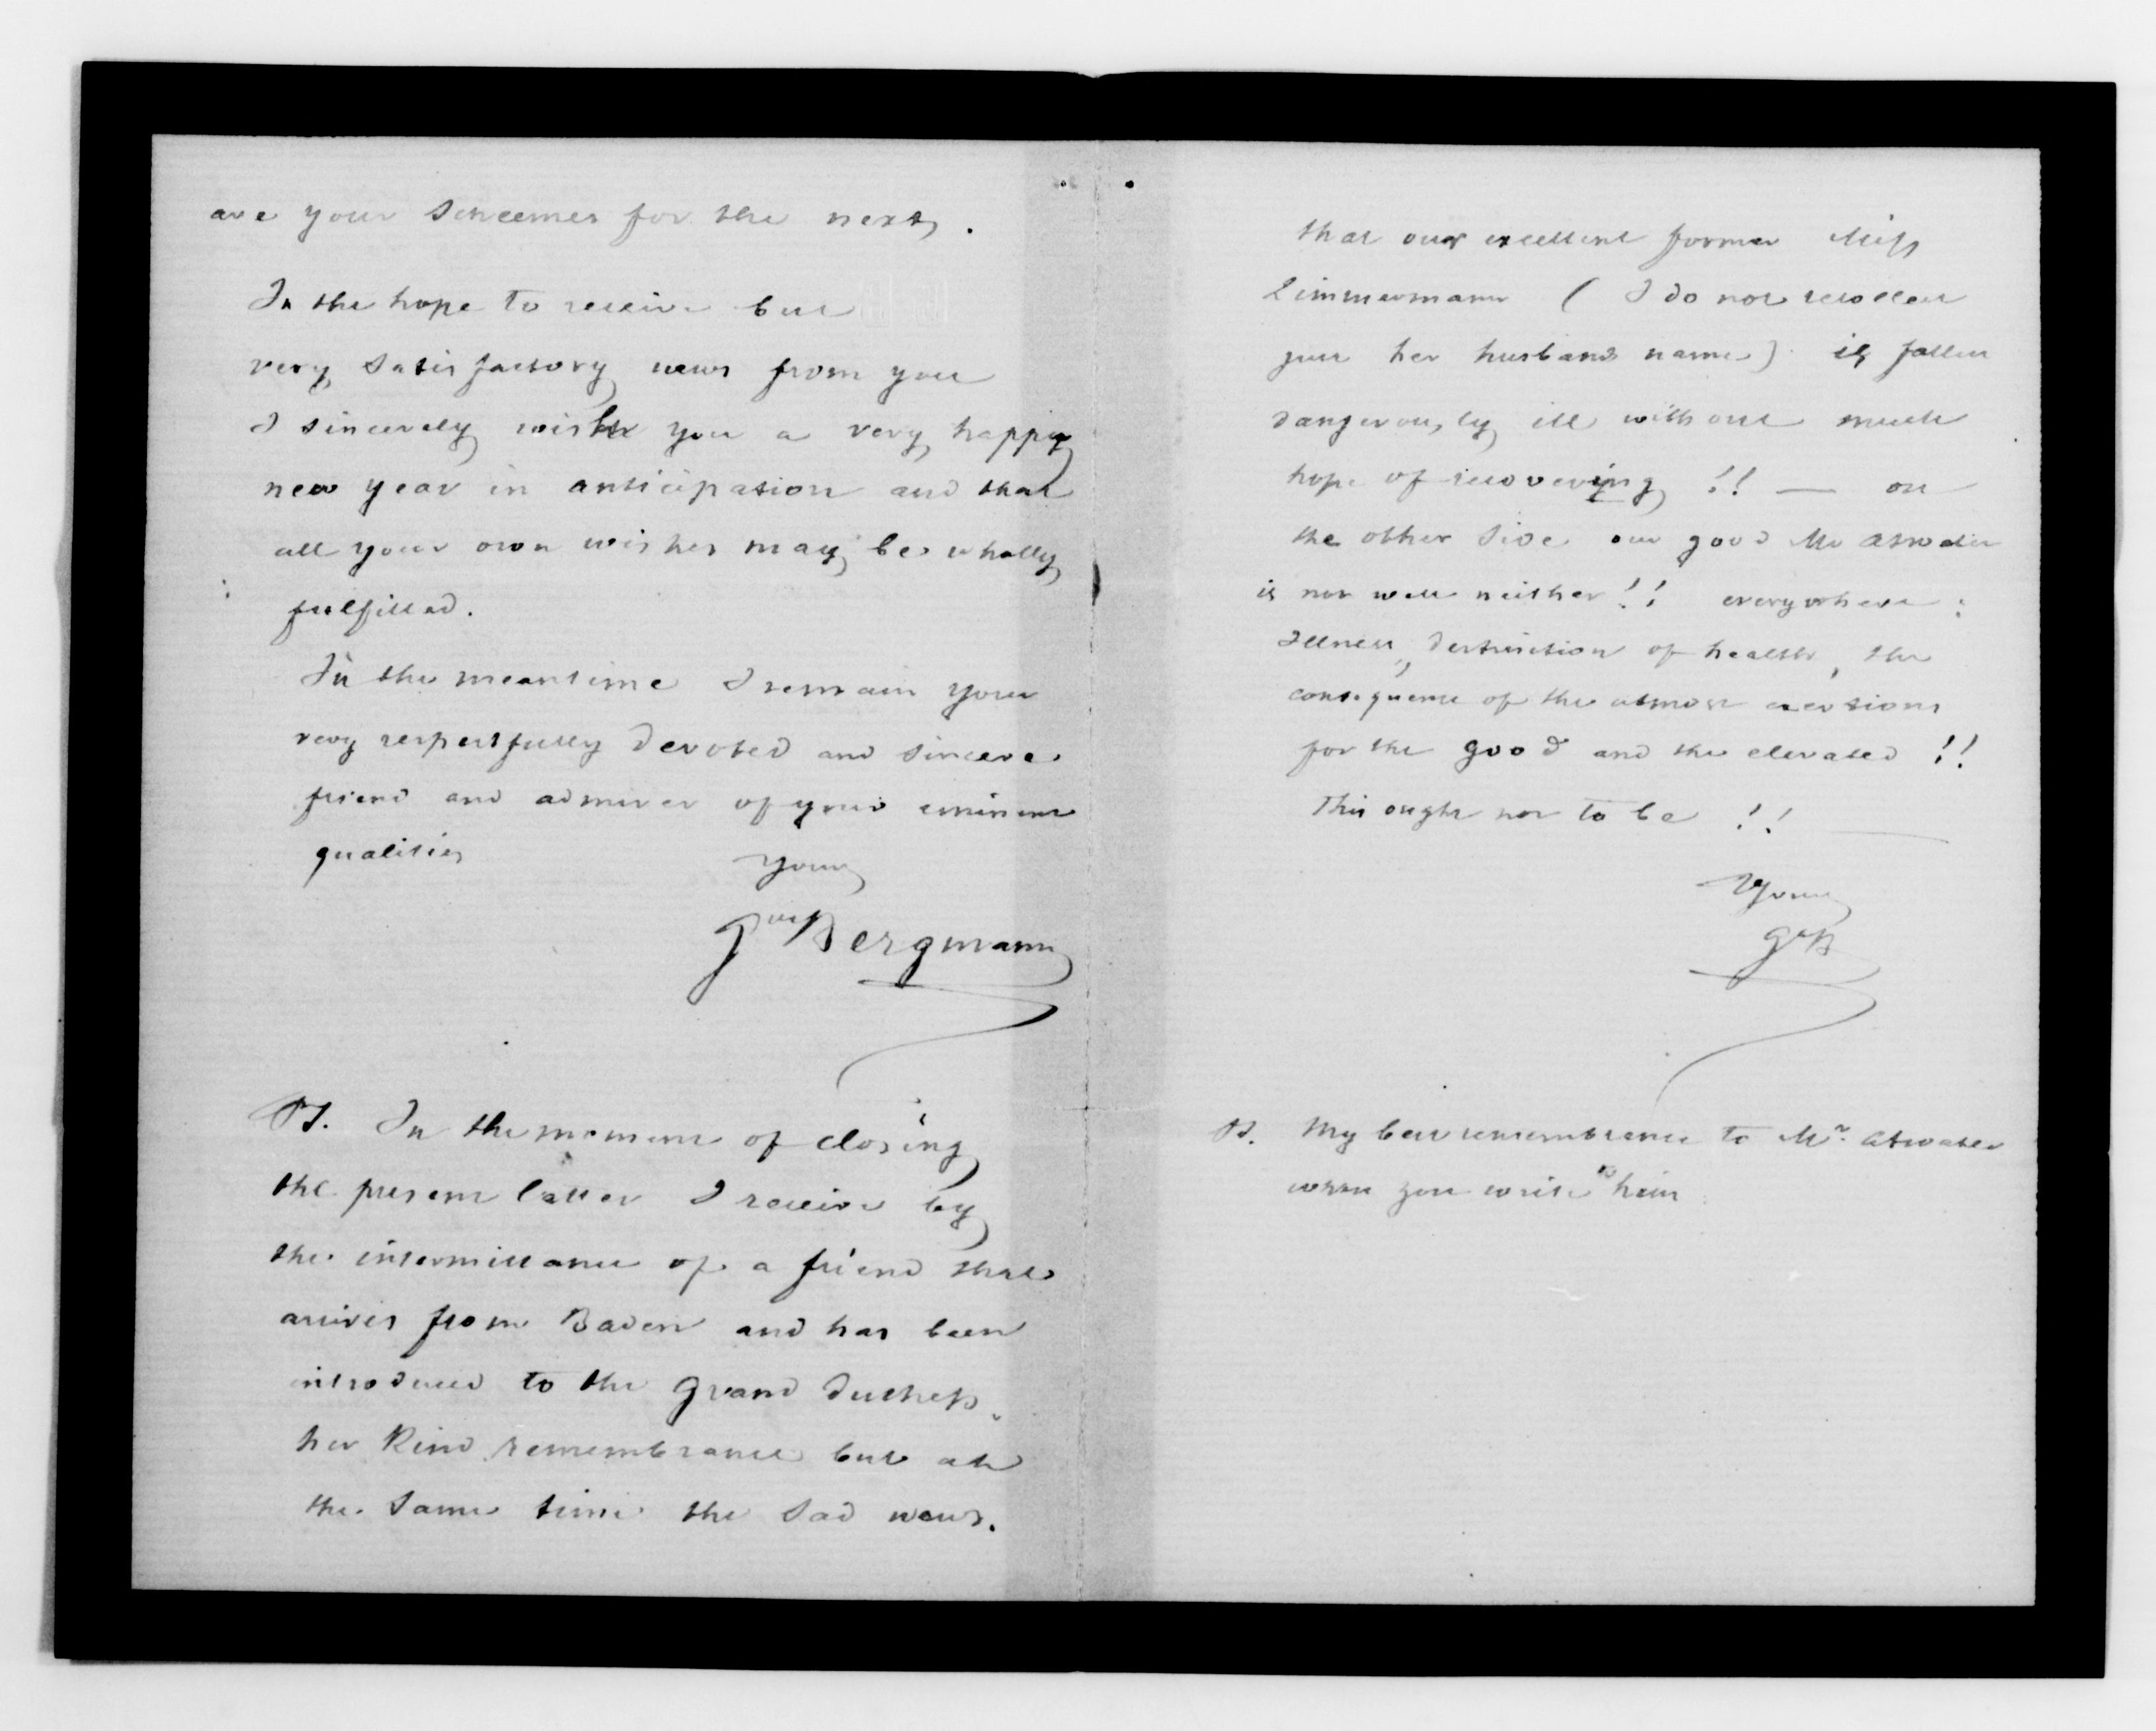 are your scheemes for the next.
In the hope to receive but
very satisfactory news from you
I sincerely wish you a very happy
new year in anticipation and that
all your own wishes may be wholly
fulfilled.
In the meantime I remain your
very respectfully devoted and sincere
friend and admirer of your eminent
qualities
Yours
Gus Bergmann
PS. In the moment of closing
the present letter I receive by
the intermittance of a friend that
arrives from Baden and has been
introduced to the Grand Duchess
her kind remembrance but at
the same time the sad news.
that our excellent former Miss
Zimmermann ( I do not recollect
just her husbands name) is fallen
dangerously ill without much
hope of recovering !! — on
the other side our good Mr Atwater
is not well neither!! everywhere :
Illness, destruction of health, the
consequence of the utmost exertions
for the good and the elevated !!
This ought not to be !! —
Yours
GsB
PS. My best remembrance to Mr. Atwater
when you write to him